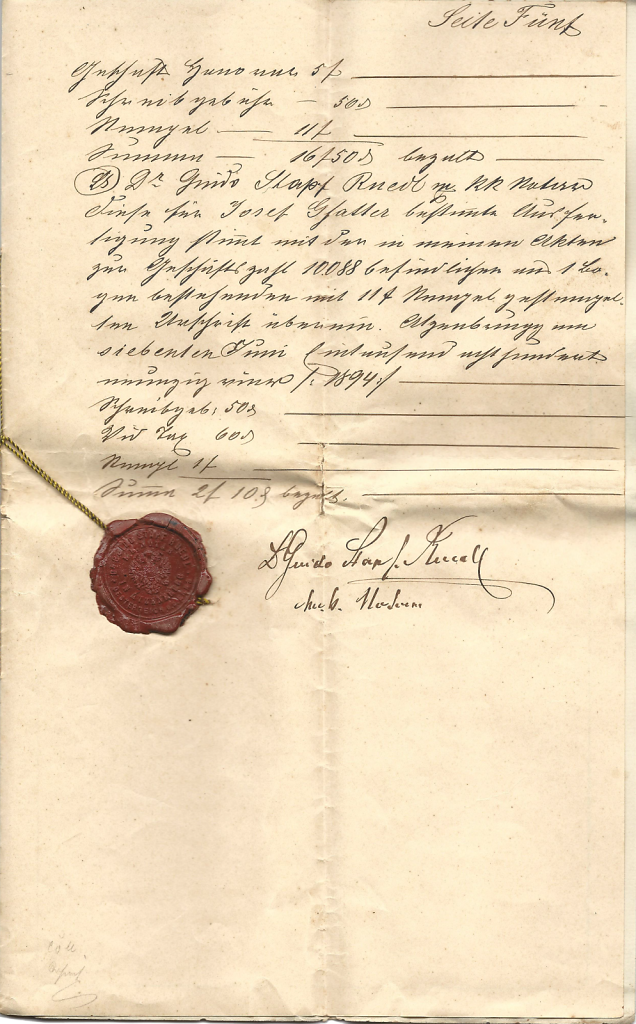 Seite Fünf
Geschäft Honorar 5f
Schreibgebühr — 50d
Stempel — 11f
Summa — 16f50d bezalt
LS Dr Guido Stapf Ruedl mp KK Notar
Diese für Josef Gfatter bestimte Ausfer-
tigung stimt mit der in meinen Akten
zur Geschäftszahl 10088 befindlichen aus 1 Bo-
gen bestehenden mit 11f Stempel gestempel-
ten Urschrift überein. Atzenbrugg am
siebenten Juni Eintausend achthundert
neunzig vier /: 1894 :/
Schreibgeb: 50d
Vid Tax 60d
Stempl 1f
Summa 2f 10d bezalt.
Dr Guido Stapf. Ruedl
k. k. Notar